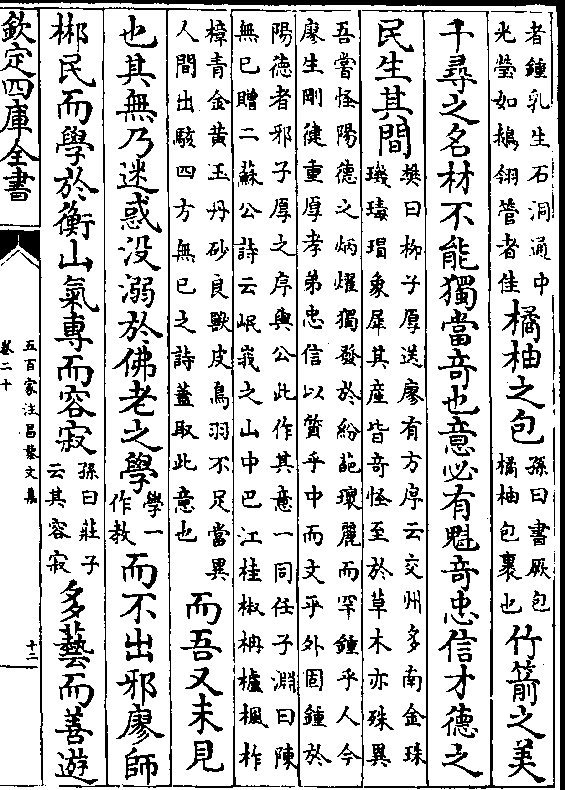 者鍾乳生石洞通中
光瑩如鵝翎管者佳
橘柚之包
孫曰書厥包
橘柚包裹也
竹箭之美
千尋之名材不能獨當竒也意必有魁竒忠信才德之
民生其間
樊曰栁子厚送廖有方序云交州多南金珠
璣瑇瑁象犀其產皆竒怪至於草木亦殊異
吾嘗怪陽德之炳燿獨發於紛葩瓌麗而罕鍾乎人今
廖生剛健重厚孝弟忠信以質乎中而文乎外固鍾於
陽德者邪子厚之序與公此作其意一同任子淵曰陳
無已贈二蘇公詩云岷峩之山中巴江桂椒柟櫨楓柞
樟青金黃玉丹砂良獸皮鳥羽不足當異
人間出駭四方無已之詩蓋取此意也
而吾又未見
也其無乃迷惑没溺於佛老之學
學一
作教
而不出邪廖師
郴民而學於衡山氣專而容寂
孫曰莊子
云其容寂
多藝而善遊
欽定四庫全書
五百家注昌黎文集
卷二十
十二